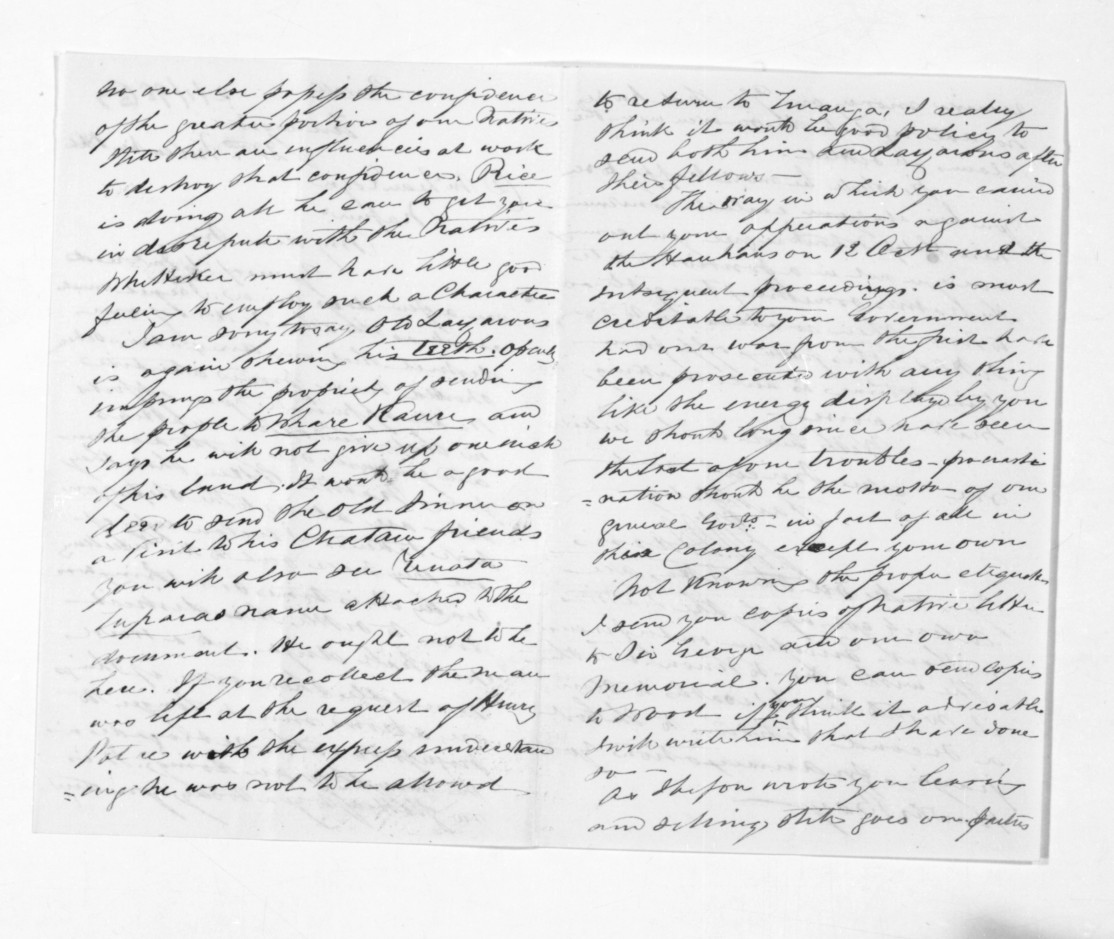 no one else possess the confidence
of the greater portion of our Natives
Still there are influencies at work
to destroy that confidence. Rice
is doing all he can to get you
in disrepute with the Natives
Whittiker must have little good
feeling to employ such a Character
I am sorry to say Old Lazarous
is again shewing his teeth. openly
the propriety of sending
the people to Whare Kaure and
says he will not give up one inch
of his land. It would be a good
to send the old sinner on
a visit to his Chatam friends
You will also see Renata
Tuparas name attached to the
document. He ought not to be
here. If you recollect the man
was left at the request of Henry
Potae with the express understand
=ing he was not to be allowed
to return to Turanga, I really
think it would be good policy to
send both him and Lazarous after
their fellows –
The way in which you carried
out your opperations against
the Hauhaus on 12 Octr and the
subsequent proceedings. is most
creditable to your Government
had our war from the first have
been prosecuted with any thing
like the energy displayed by you
we should long since have seen
the last of our troubles – procrasti
=nation should be the motto of our
general Govts. – in fact of all in
this Colony except your own
Not Knowing the proper etiquette
I send you copies of Native letter
to Sir George and our own
Memorial. You can send copies
to Wood if you think it advisable
I will write him that I have done
so –
As Shepon wrote you leasing
and selling still goes on.